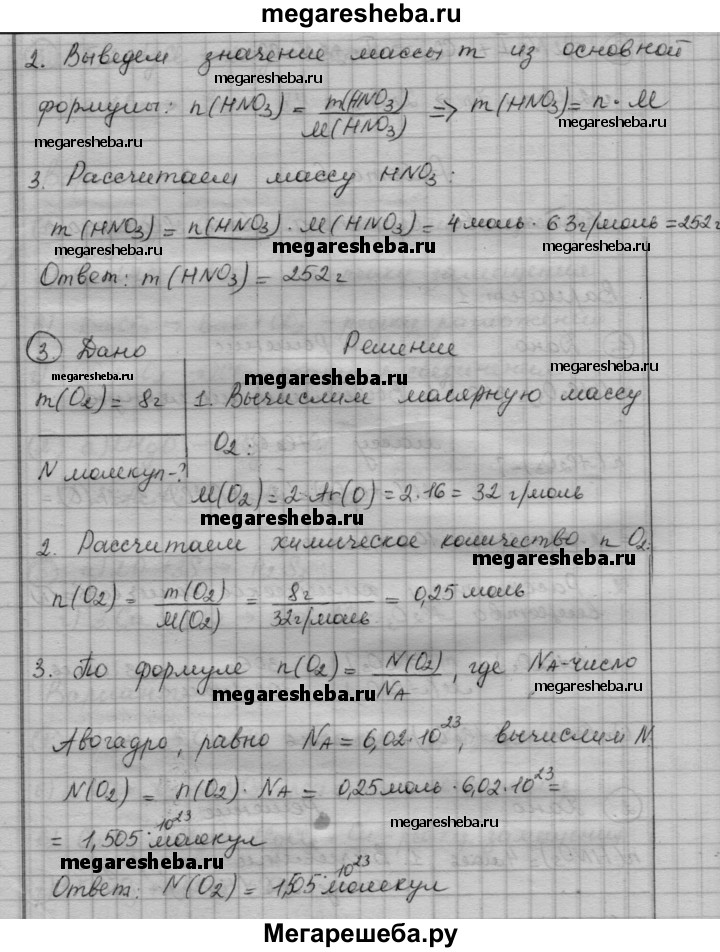 megaresheba.ru
2. Выведем значение массы m из основной
megaresheba.ru
формулы: n(HNO₃) = m(HNO₃)/M(HNO₃) => m(HNO₃) = n · M
megaresheba.ru megaresheba.ru
3. Рассчитаем массу HNO₃:
m(HNO₃) = n(HNO₃) · M(HNO₃) = 4 моль · 63 г/моль = 252 г
megaresheba.ru megaresheba.ru megaresheba.ru
Ответ: m(HNO₃) = 252 г
③ Дано Решение
megaresheba.ru megaresheba.ru megaresheba.ru
m(O₂) = 8 г 1. Вычислим молярную массу
O₂:
N молекул - ?
M(O₂) = 2 · Ar(O) = 2 · 16 = 32 г/моль
megaresheba.ru
2. Рассчитаем химическое количество n O₂:
megaresheba.ru
n(O₂) = m(O₂)/M(O₂) = 8г/32г/моль = 0,25 моль
3. По формуле n(O₂) = N(O₂)/NA, где NA - число
megaresheba.ru megaresheba.ru
Авогадро, равно NA = 6,02 · 10²³, вычислим N
N(O₂) = n(O₂) · NA = 0,25 моль · 6,02 · 10²³ =
= 1,505 · 10²³ молекул
megaresheba.ru
megaresheba.ru
Ответ: N(O₂) = 1,505 · 10²³ молекул
megaresheba.ru
Мегарешеба.ру